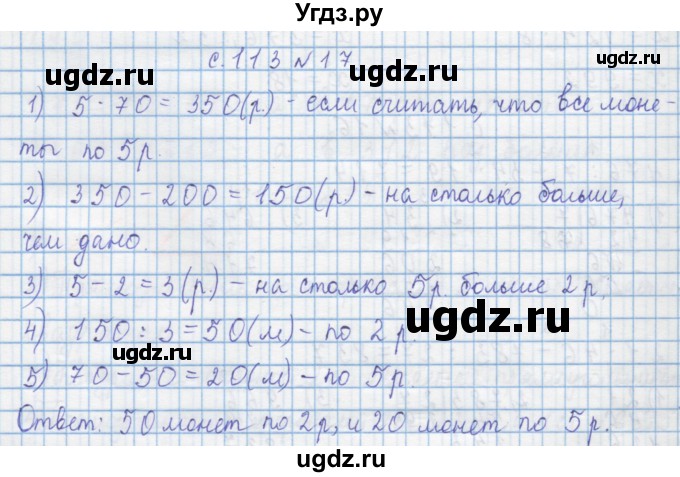 Угдз.ру
с. 113 №17
ugdz.ru ugdz.ru ugdz.ru
1) 5 · 70 = 350(р.) - если считать, что все моне-
ты по 5 р.
ugdz.ru ugdz.ru
2) 350 - 200 = 150(р.) - на столько больше,
чем дано.
3) 5 - 2 = 3(р) - на столько 5р больше 2 р.
ugdz.ru
4) 150 : 3 = 50(м) - по 2 р.
ugdz.ru
5) 70 - 50 = 20(м) - по 5р.
Ответ: 50 монет по 2р, и 20 монет по 5 р.
ugdz.ru